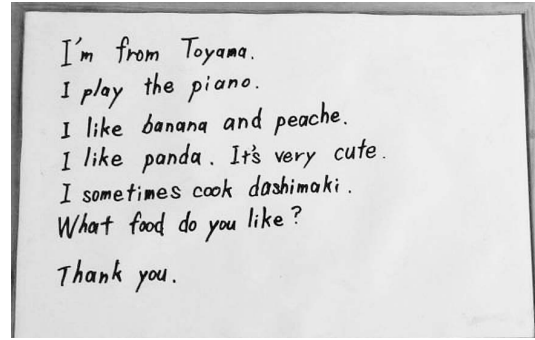 I'm from Toyama.
I play the piano.
I like banana and peache.
I like panda. It's very cute.
I sometimes cook dashimaki.
What food do you like?
Thank you.